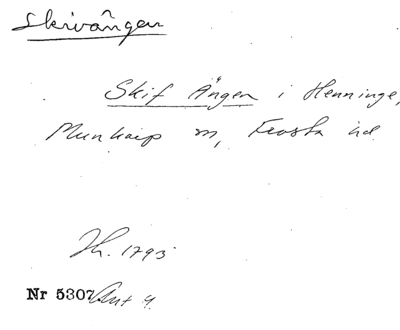 Skivängen
Skif Ängen i Henninge,
Munkarp sn, Frosta hd
Jh. 1793
Nr 5307 Akt 4.